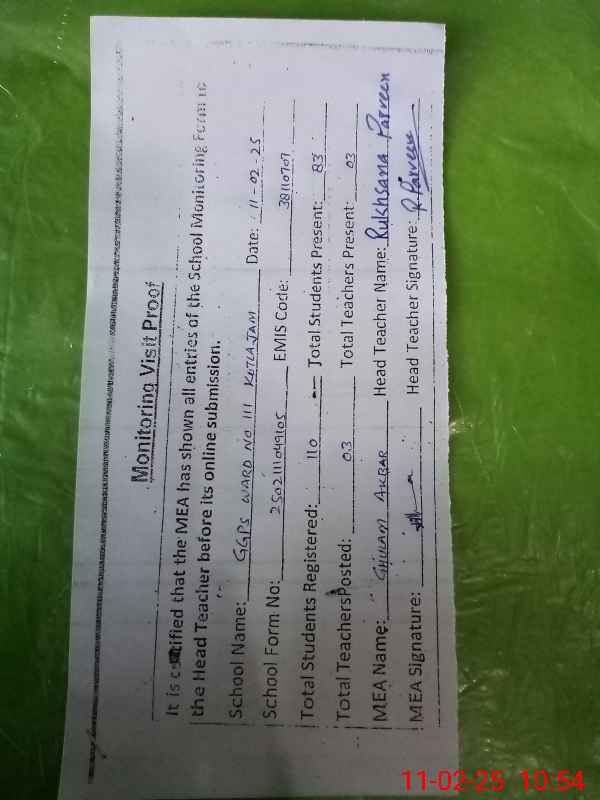 Monitoring Visit Proof
It is certified that the MEA has shown all entries of the School Monitoring Form to
the Head Teacher before its online submission.
School Name: GGPS WARD NO 111 KOTLA JAM Date: 11-02-25
School Form No: 250211049105 EMIS Code: 38110707
Total Students Registered: 110 Total Students Present: 83
Total Teachers Posted: 03 Total Teachers Present: 03
MEA Name: GHULAM AKBAR Head Teacher Name: Rukhsana Parveen
MEA Signature: Head Teacher Signature: R Parveen
11-02-25 10:54